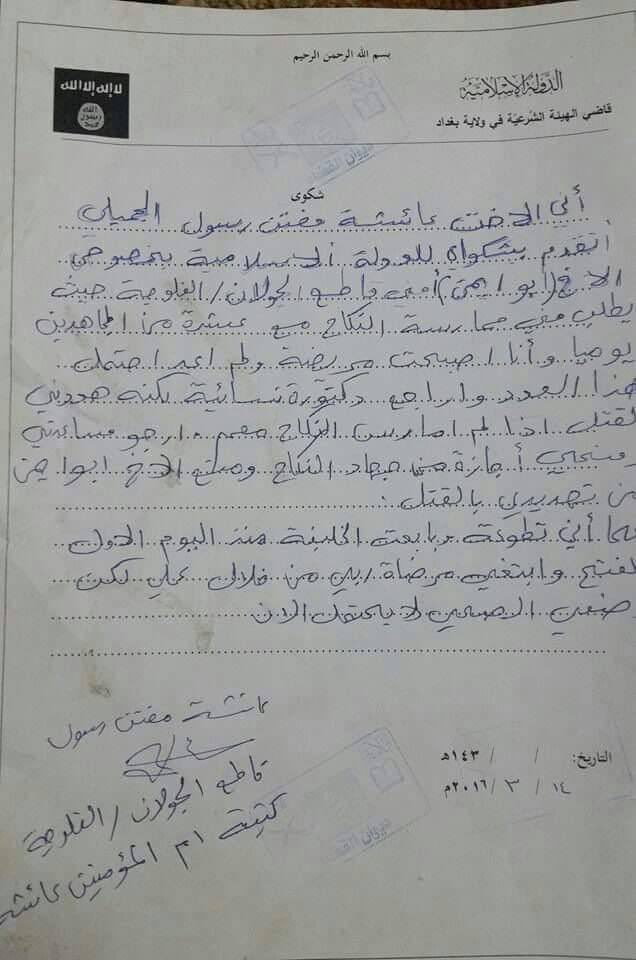 بسم الله الرحمن الرحيم
لا إله إلا الله
الله
رسول
محمد
الدولة الإسلامية
قاضي الهيئة الشرعية في ولاية بغداد
ديوان القضاء
شكوى
أني الاخت عائشة مفتن رسول الجميلي
اتقدم بشكواي للدولة الاسلامية بخصوص
الاخ (ابو ايمن) أمني قاطع الجولان / الفلوجة حيث
يطلب مني ممارسة النكاح مع عشرة من المجاهدين
يوميا وأنا اصبحت مريضة ولم اعد احتمل
هذا العدد واراجع دكتورة نسائية لكنه هددني
لقتل اذا لم امارس النكاح معهم. ارجو مساعدتي
ومنحي أجازة من جهاد النكاح ومنع الاخ ابو ايمن
من تهديدي بالقتل:
بما أني تطوعة بايعت الخليفة منذ اليوم الاول
لفتح وابتغي مرضاة ربي من خلال عملي لكن
وضعي الصحي لا يحتمل الان
عائشة مفتن رسول
قاطع الجولان / الفلوجة
كتيبة ام المؤمنين عائشة
التاريخ: / / ١٤٣هـ
١٤ / ٣ / ٢٠١٦م
ديوان القضاء